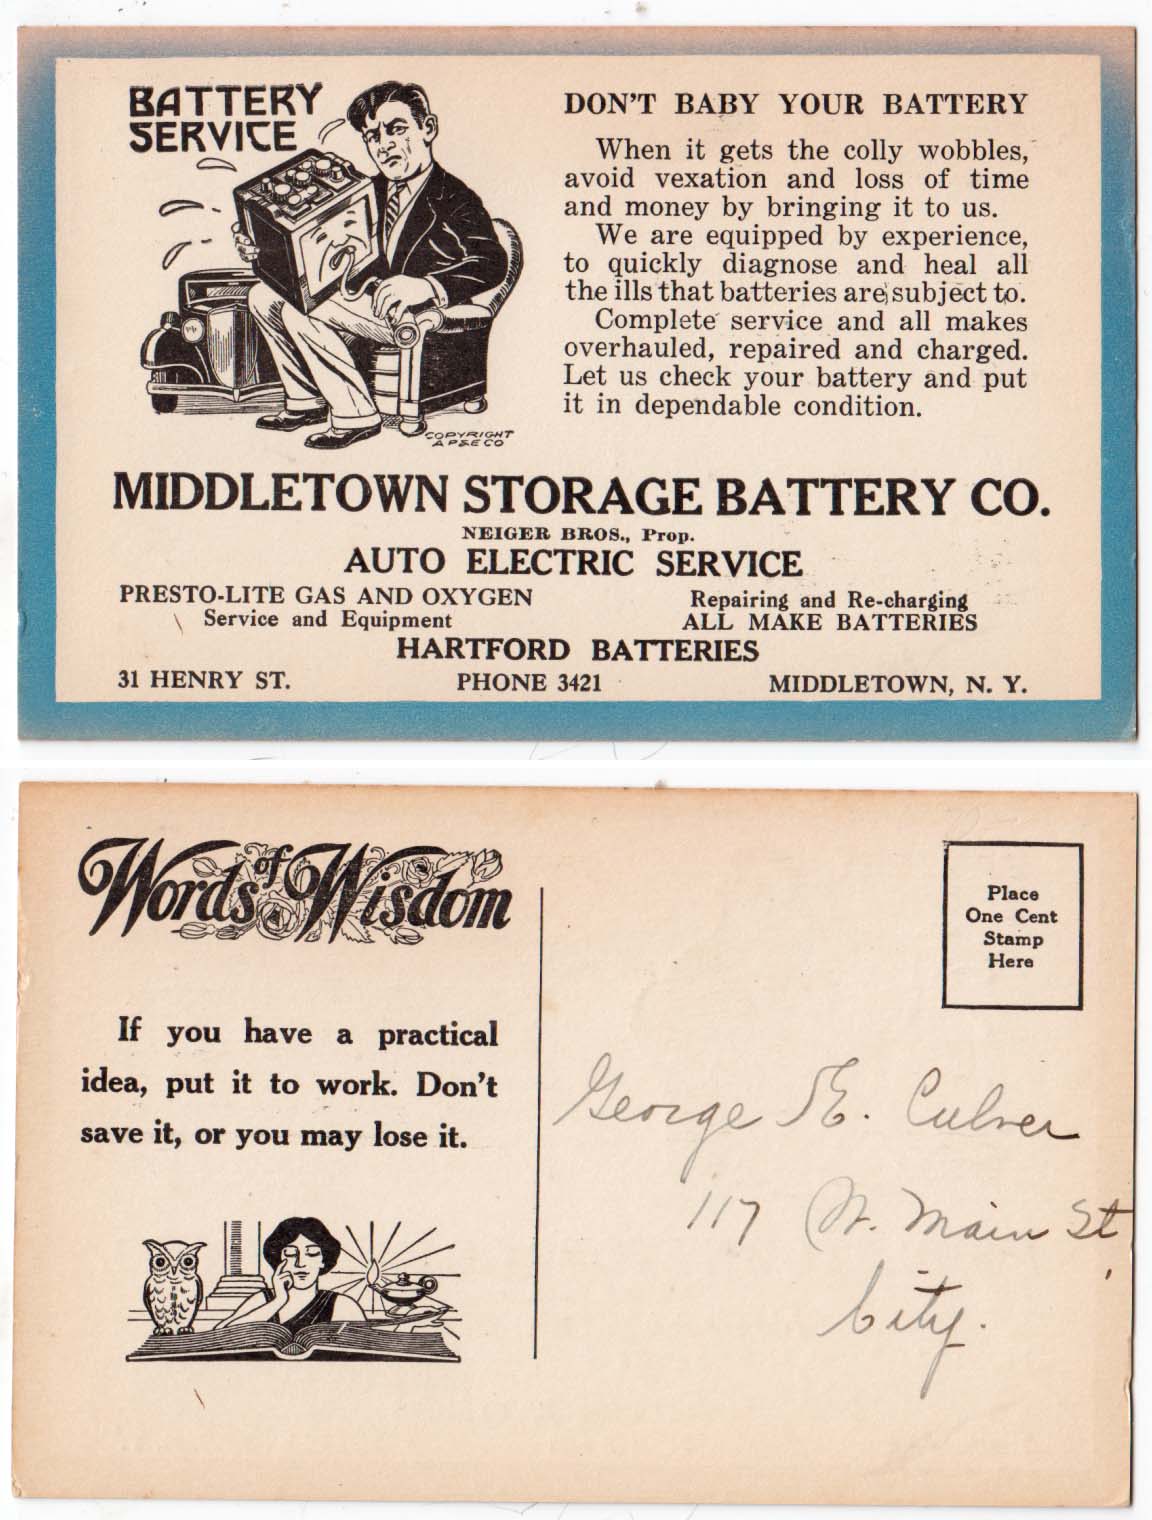 BATTERY
SERVICE
COPYRIGHT
A P&E CO
DON'T BABY YOUR BATTERY
When it gets the colly wobbles,
avoid vexation and loss of time
and money by bringing it to us.
We are equipped by experience,
to quickly diagnose and heal all
the ills that batteries are subject to.
Complete service and all makes
overhauled, repaired and charged.
Let us check your battery and put
it in dependable condition.
MIDDLETOWN STORAGE BATTERY CO.
NEIGER BROS., Prop.
AUTO ELECTRIC SERVICE
PRESTO-LITE GAS AND OXYGEN
Service and Equipment
Repairing and Re-charging
ALL MAKE BATTERIES
HARTFORD BATTERIES
31 HENRY ST. PHONE 3421 MIDDLETOWN, N. Y.
Words of Wisdom
If you have a practical
idea, put it to work. Don't
save it, or you may lose it.
Place
One Cent
Stamp
Here
George E. Culver
117 W. Main St.
City.